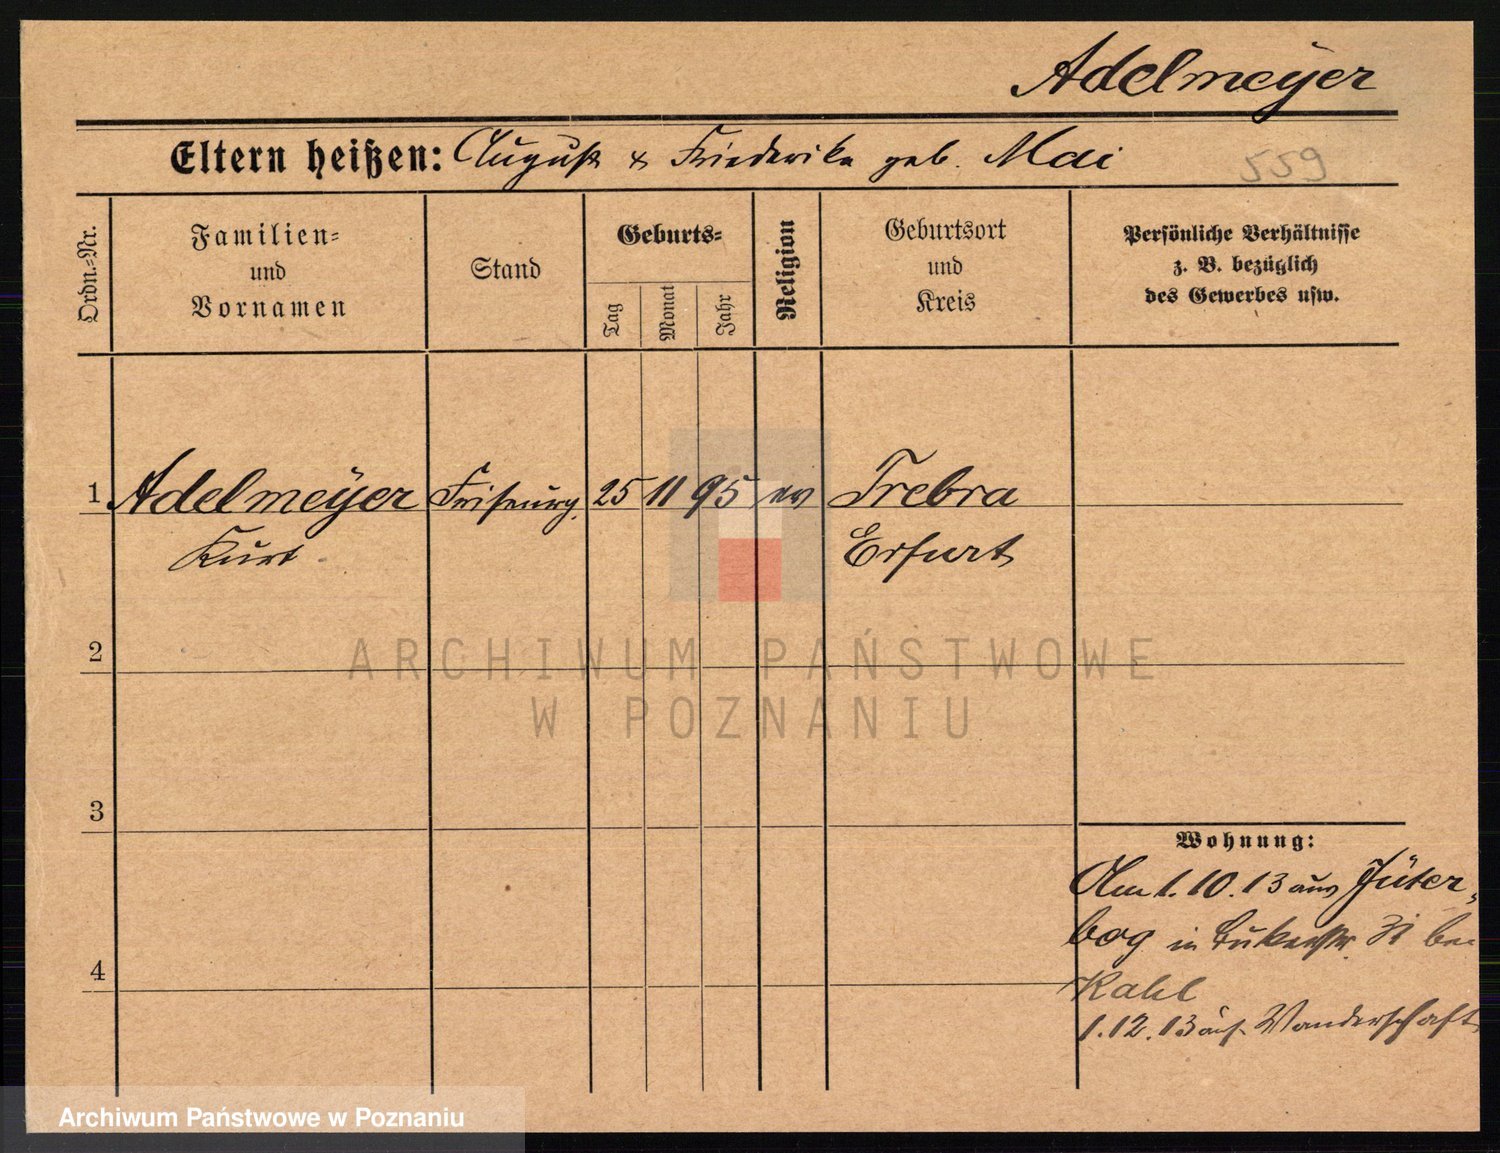 Adelmeÿer
Eltern heißen: August & Friederike geb. Mai
559
Ordn.-Nr.
Familien-
und
Vornamen
Stand
Geburts-
Tag
Monat
Jahr
Religion
Geburtsort
und
Kreis
Persönliche Verhältnisse
z. B. bezüglich
des Gewerbes usw.
1 Adelmeÿer 25 11 95 ev Trebra
Kurt Erfurt
2
ARCHIWUM PAŃSTWOWE
W POZNANIU
3
Wohnung:
Am 1.10.13 aus Jüter-
bog in 31 bei
4
Kahl
1.12.13 auf Wanderschaft
Archiwum Państwowe w Poznaniu